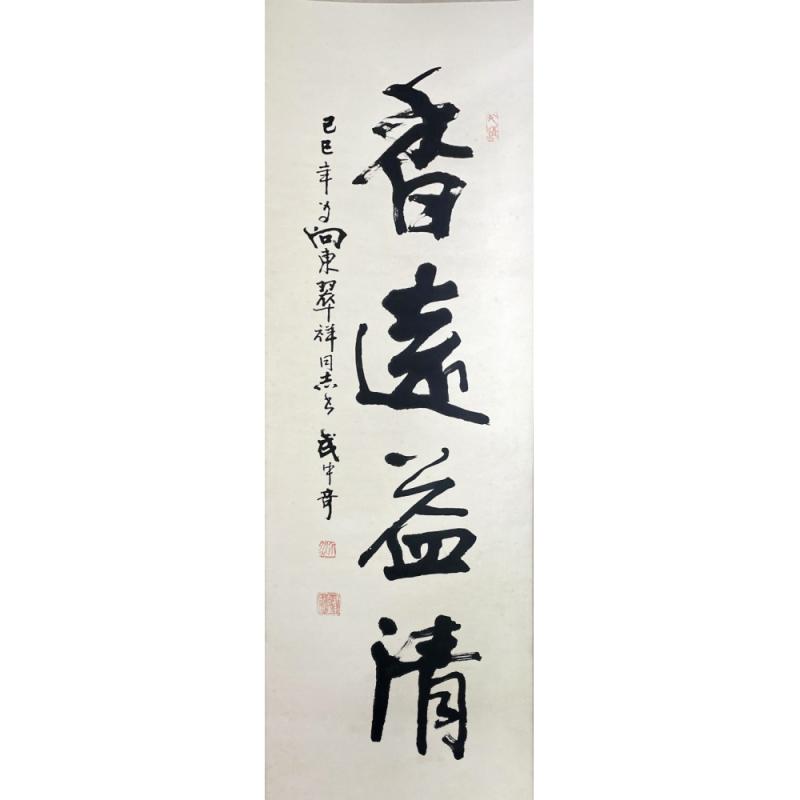 香遠益清
己巳年為向東翠祥同志書 武中奇